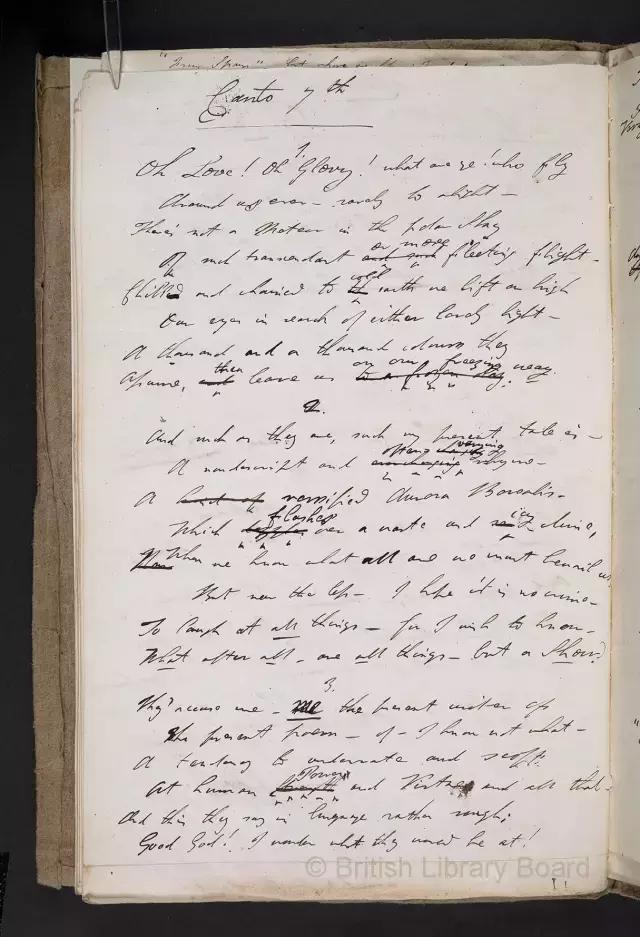 Canto 7th
1.
Oh Love! Oh Glory! what are ye! who fly
Around us ever – rarely to alight –
There's not a Meteor in the polar Sky
or more
Of such transcendant and such fleeting flight –
cold
Chill and chained to earth we lift on high
Our eyes in search of either lovely light –
A thousand and a thousand colours they
then on our freezing way.
Assume, and leave us to a frozen
2.
And such as they are, such my present tale is –
A nondescript and ever varying rhyme –
A kind of versified Aurora Borealis –
flashes icy
Which over a waste and clime,
When we know what all are we must bewail us
But ne'er the less – I hope it is no crime –
To laugh at all things – for I wish to know –
What after all – are all things – but a Show?
3.
They accuse me – me the present writer of
The present poem – of – I know not what –
A tendency to underrate and scoff
Power
At human Strength and Virtue and all that –
And this they say in language rather rough;
Good God! I wonder what they would be at!
© British Library Board